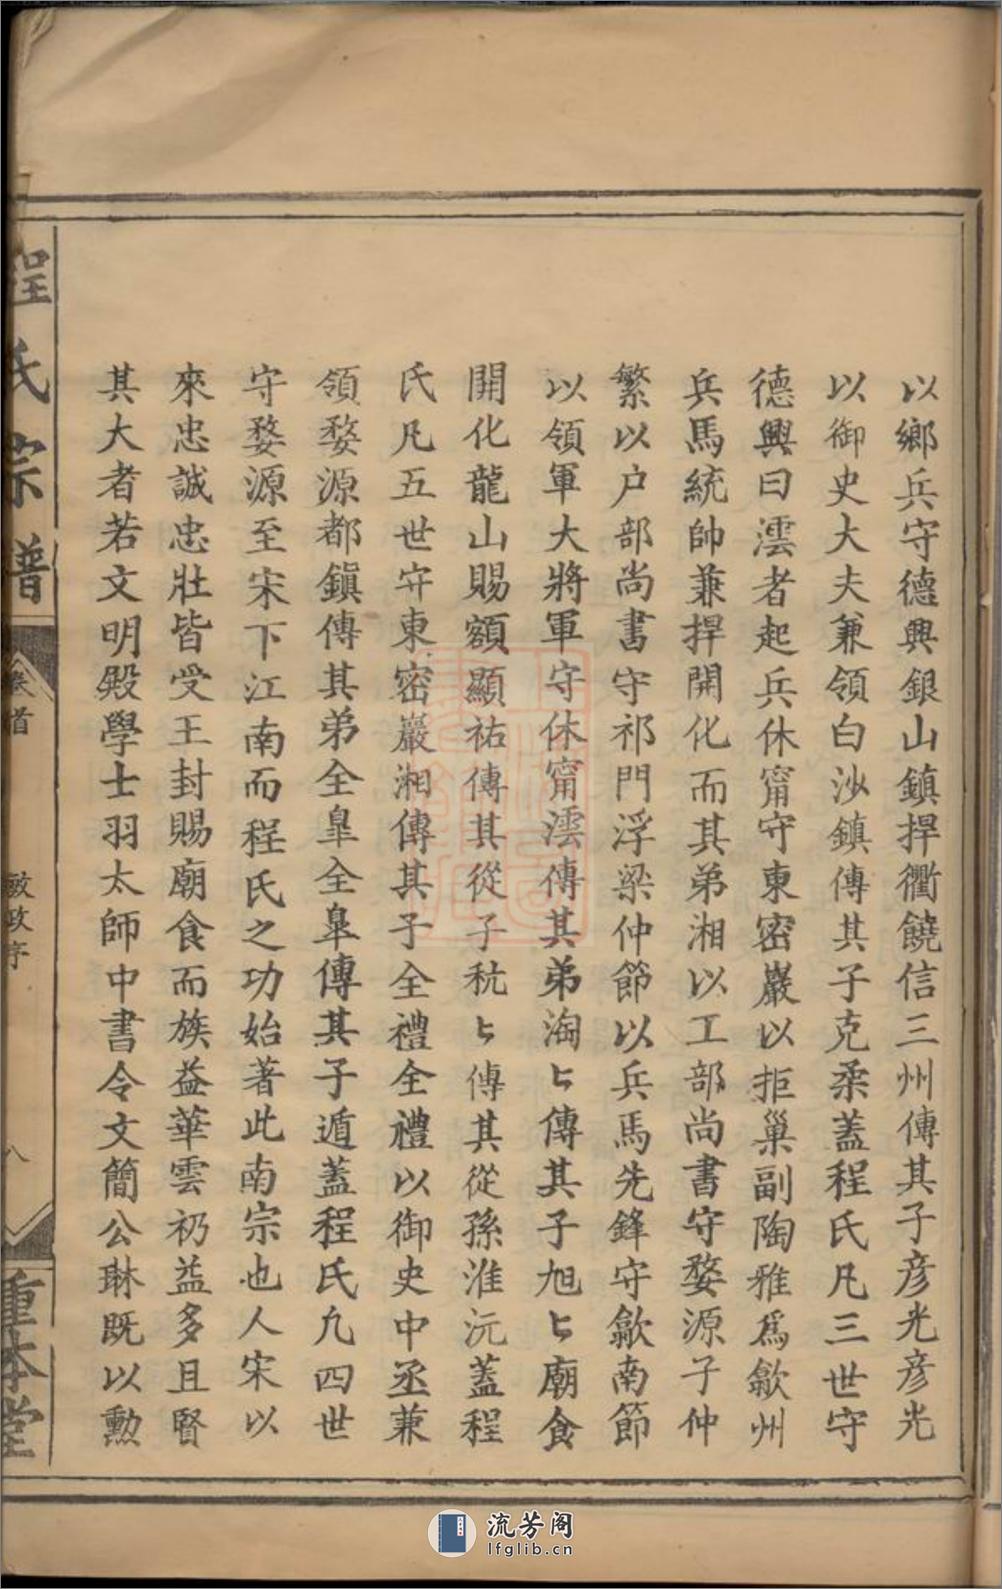 以鄉兵守德興銀山鎮捍衢饒信三州傳其子彦光彦光
以御史大夫兼領白沙鎮傳其子克柔蓋程氏凡三世守
德興曰澐者起兵休甯守東密巖以拒巢副陶雅爲歙州
兵馬統帥兼捍開化而其弟湘以工部尚書守婺源子仲
繁以户部尚書守祁門浮梁仲節以兵馬先鋒守歙南節
以領軍大將軍守休甯澐傳其弟淘匕傳其子旭匕廟食
開化龍山賜額顯祐傳其從子秔匕傳其從孫淮沅蓋程
氏凡五世守東密巖湘傳其子全禮全禮以御史中丞兼
領婺源都鎮傳其弟全臯全臯傳其子遁蓋程氏九四世
守婺源至宋下江南而程氏之功始著此南宗也人宋以
來忠誠忠壯皆受王封賜廟食而族益華雲礽益多且賢
其大者若文明殿學士羽太師中書令文簡公琳既以勲
程氏宗譜
卷首
敏政序
八
重本堂
流芳阁
lfglib.cn